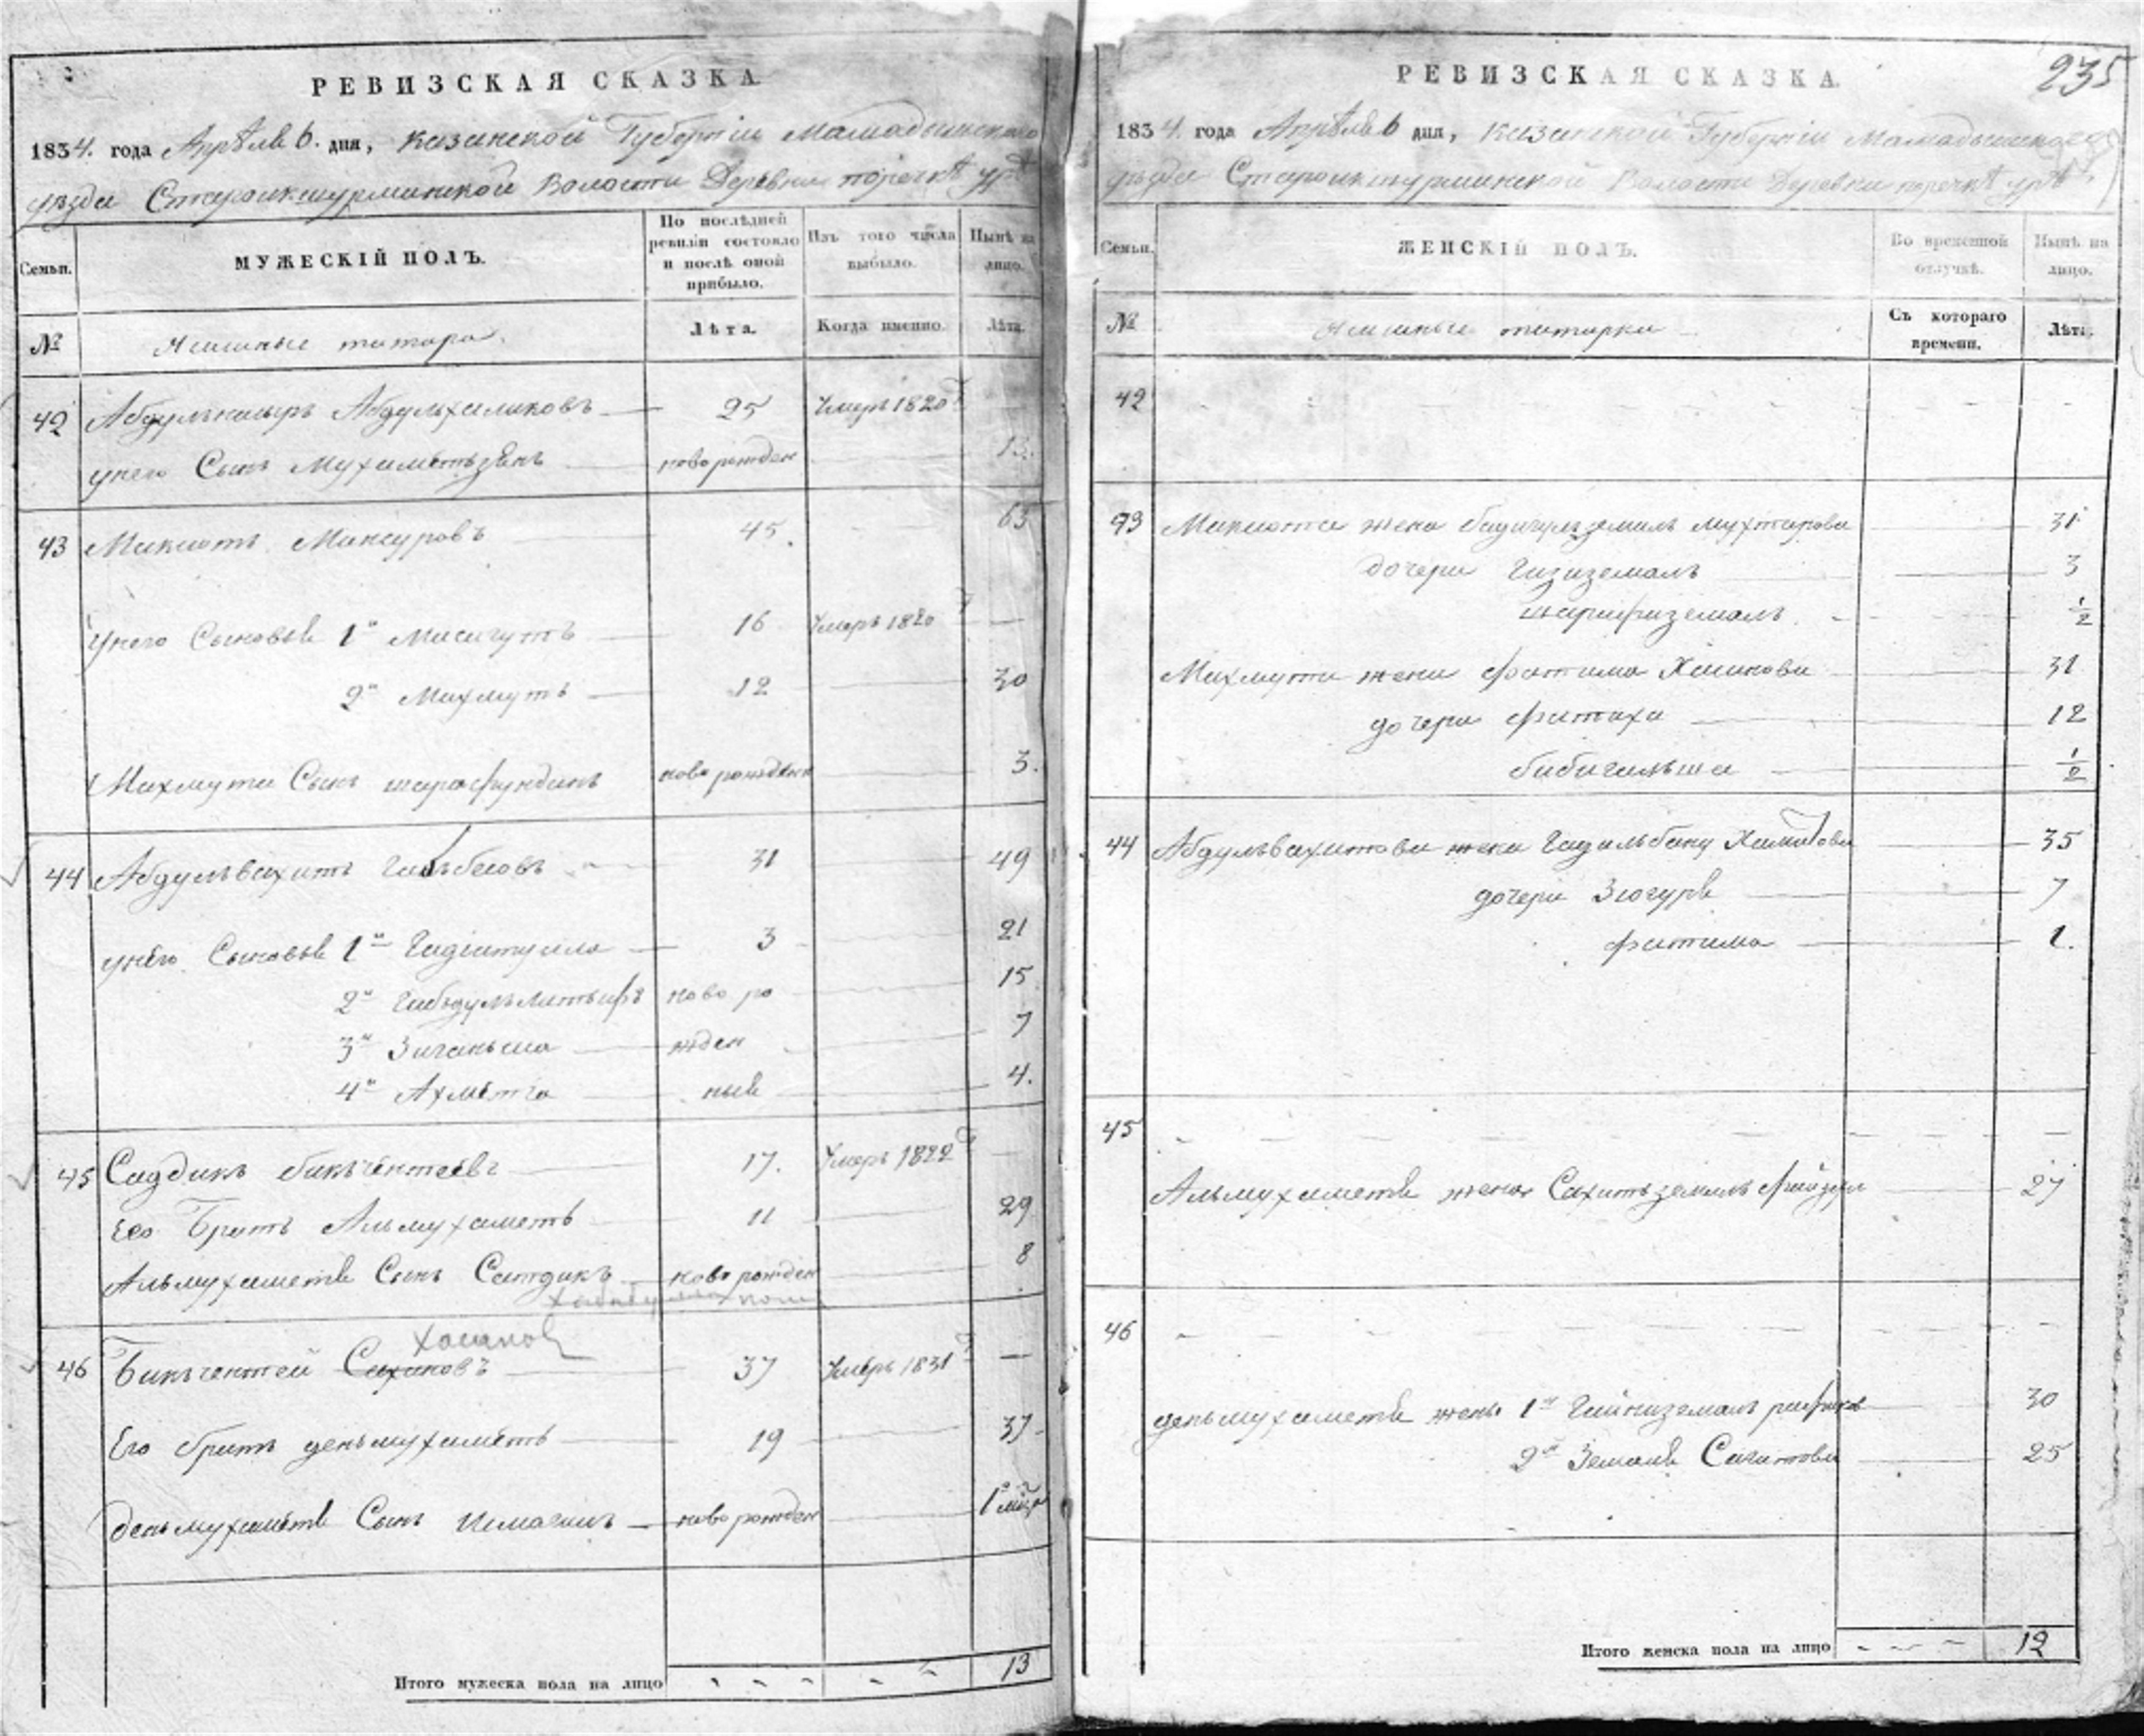 РЕВИЗСКАЯ СКАЗКА
1834. года Апрѣля 6. дня, Казанской Губерніи Мамадышского
уѣзда Староикшурминской Волости Деревни
Семьи.
МУЖЕСКІЙ ПОЛЪ.
По послѣдней ревизіи состояло и послѣ оной прибыло.
Изъ того числа выбыло.
Нынѣ на лицо.
№
Ясашные татара
Лѣта.
Когда именно.
Лѣта.
42 Абдулънасыръ Абдулхаликовъ 25 Умеръ 1820
у него Сынъ Мухаметьзянъ новорожден 13.
43 Мансуровъ 45. 63
У него Сыновья 1й 16 Умеръ 1820 —
2й Махмутъ 12 30
Махмута Сынъ шарафундинъ новорожден 3.
44 Абдулъвахитъ 31 49
у него Сыновья 1й Гадіатулла 3 21
2й Габдулълатыфъ ново ро 15
3й Зиганьша жден 7
4й Ахметга ные 4.
45 Садыкъ бикъчентаевъ 17. Умеръ 1822 —
Его Братъ Альмухаметъ 11 29
Альмухаметя Сынъ Ситдикъ новорожден 8
46 Бикъчентей Сахановъ Хасанов 37 Умеръ 1831 —
Его братъ деньмухаметъ 19 37
деньмухаметя Сынъ Исмагилъ новорожден 1 мца
Итого мужеска пола на лицо 13
235
РЕВИЗСКАЯ СКАЗКА.
1834. года Апрѣля 6 дня, Казанской Губерніи Мамадышского
уѣзда Староикшурминской Волости Деревни
Семьи.
ЖЕНСКІЙ ПОЛЪ.
Во временной отлучкѣ.
Нынѣ на лицо.
№
Ясашные татарки
Съ котораго времени.
Лѣта.
42
43 жена бадигулъземалъ мухтарова 31
дочери Гизиземалъ 3
шарифиземалъ ½
Махмута жена фатима 31
дочери фатиха 12
бибигильша ½
44 Абдулъвахитова жена Гадильбану Хамитова 35
дочери Зюгуря 7
фатима 1.
45
Альмухаметя жена Сахитьземалъ 27
46
деньмухаметя жены 1я Гайниземалъ 30
2я Земаля Сагитова 25
Итого женска пола на лицо 12